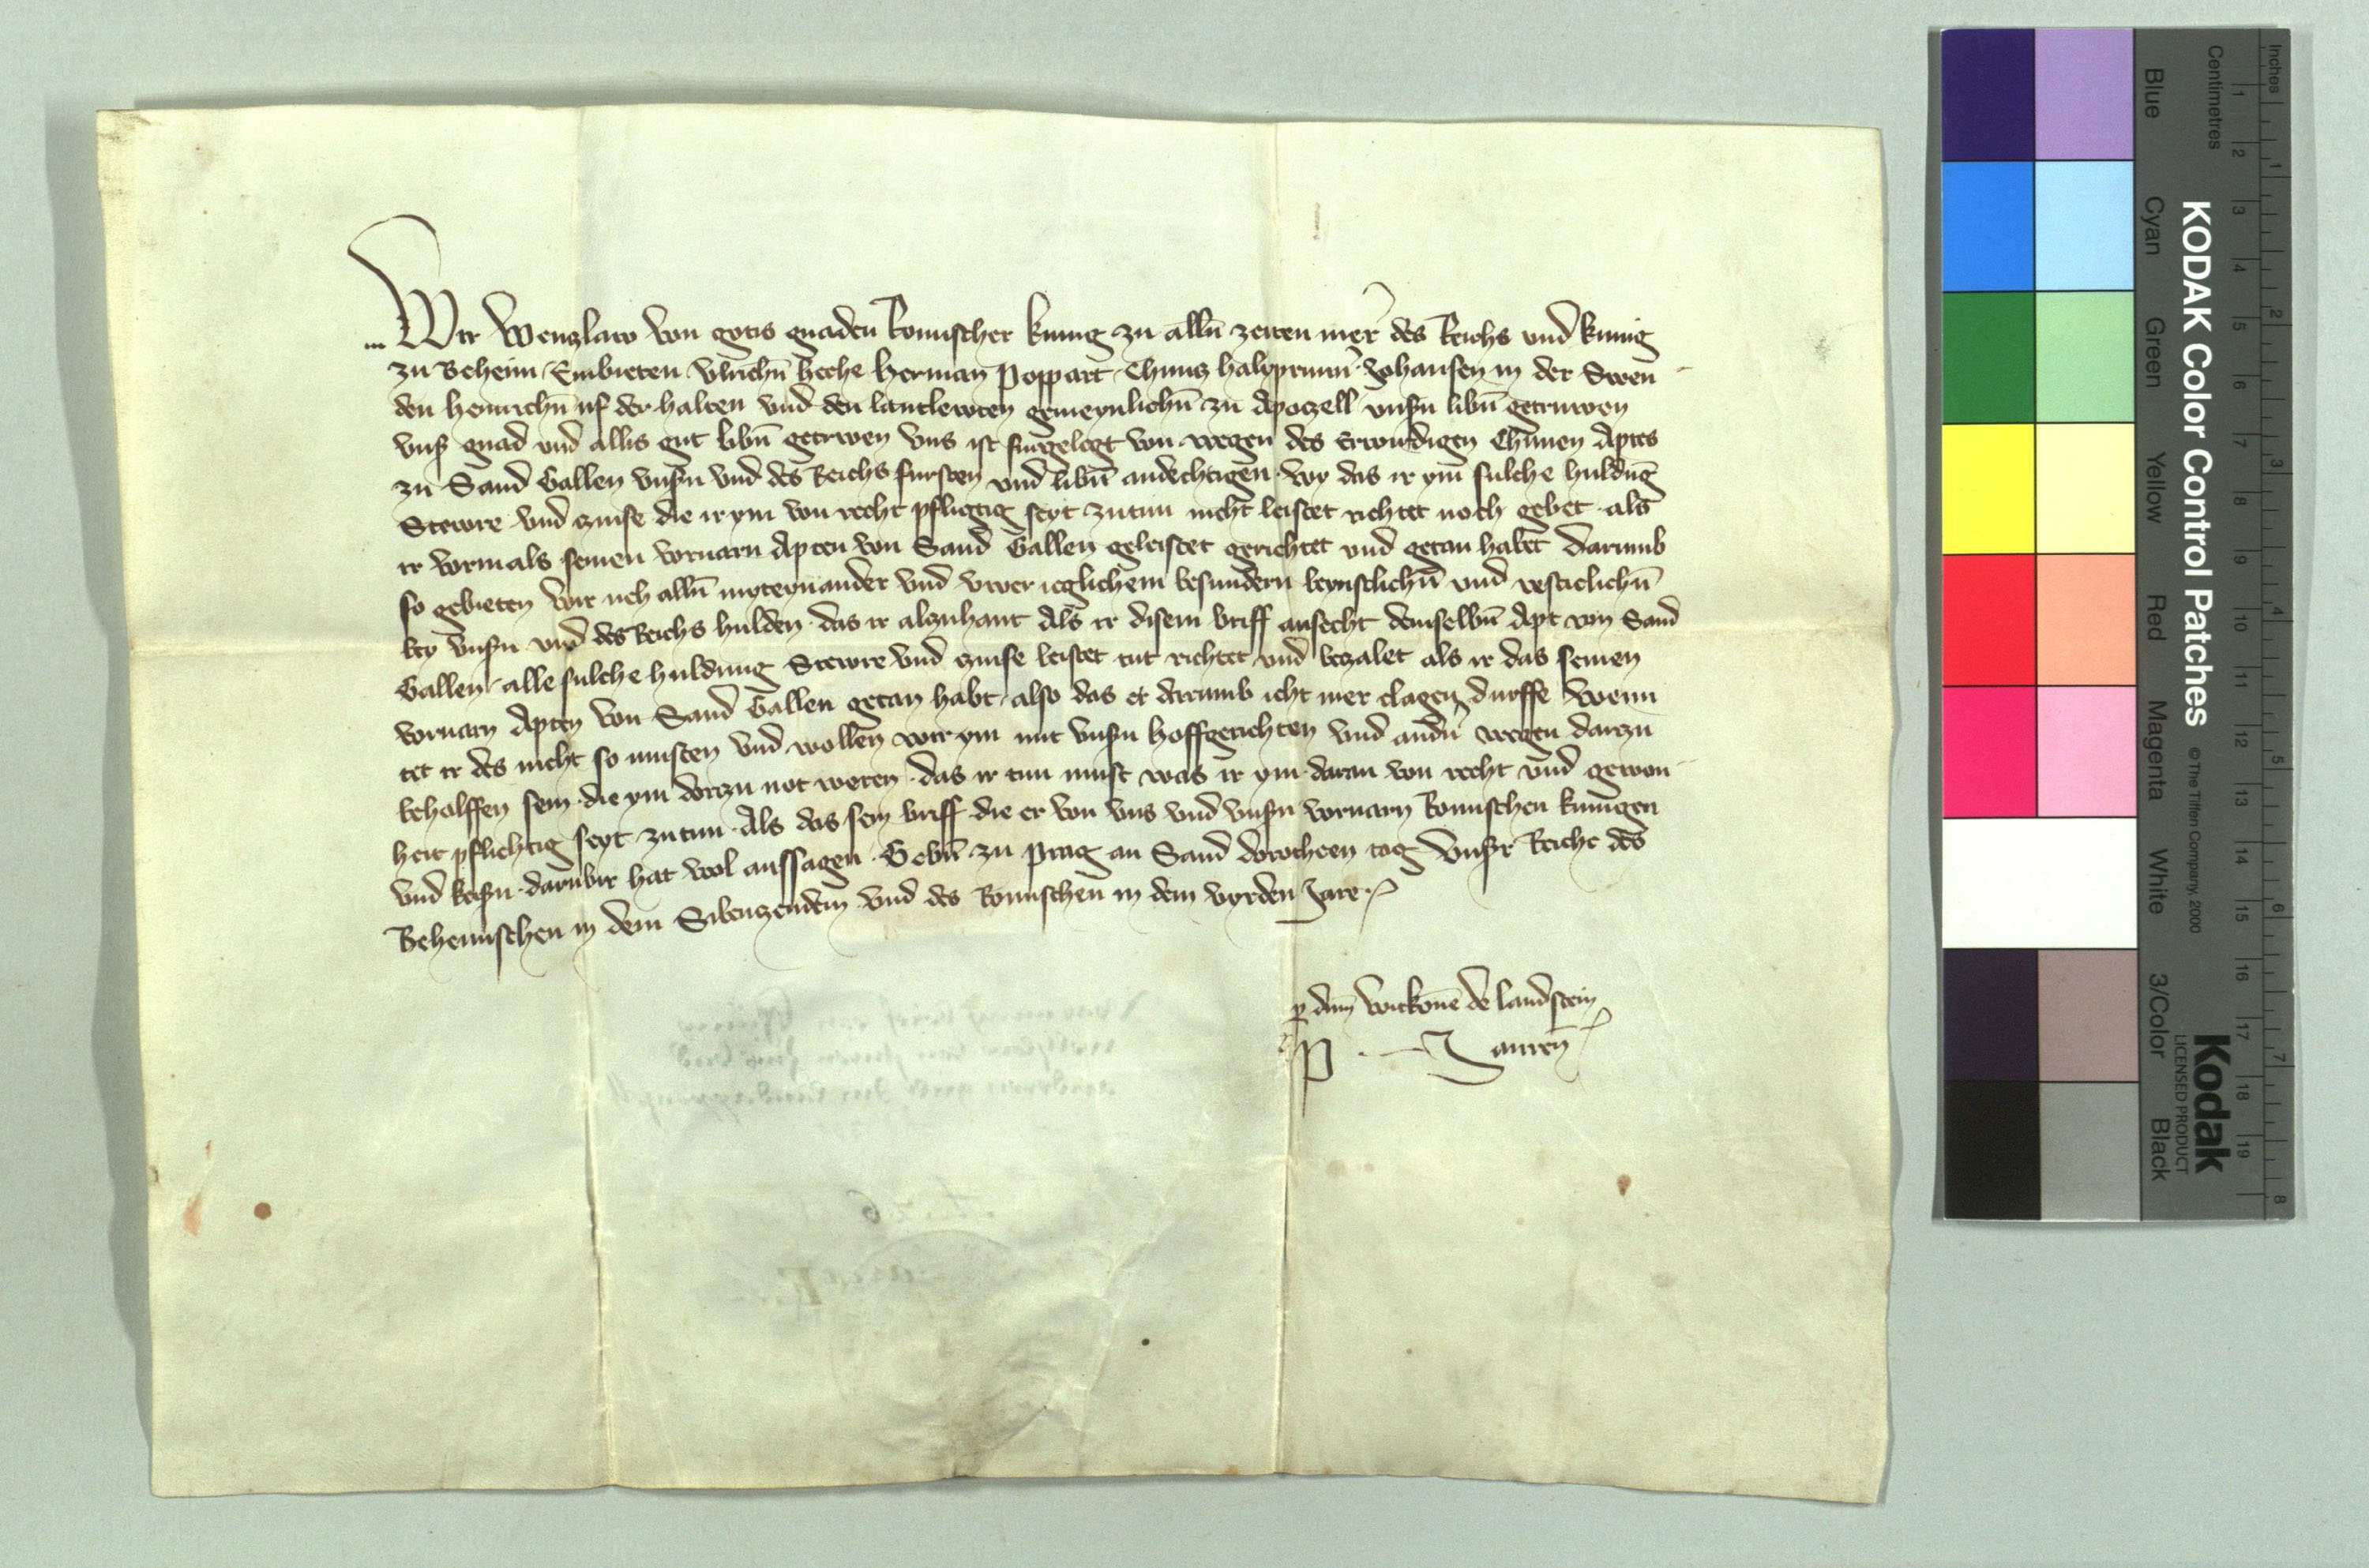 Wir Wenzlaw von gotis gnaden Romischer kunig zu alln̄ zeiten merer des Reichs und kunig
zu Beheim Embieten Ulrichn̄ heche Herman Poppart Chunz halpprunn Johansen in der Swen
den heinrichn̄ uf der halten und den lantlewten gemeynlichn̄ zu Apoczell unsern libn̄ getruwen
unser gnad und allis gut libn̄ getrwen uns ist furgelegt von wegen des Erwirdigen Chunen Aptes
zu Sand Gallen unsern und des Reichs fursten und libn̄ andechtigen wy das ir ym sulche huldung
Stewre und zinse die ir ym von recht pflugtig seyt zutun nicht leistet richtet noch gebet als
ir vormals seinen vorvarn Apten von Sand Gallen geleistet gerichtet und getan habt Darumb
so gebieten wir uch alln̄ myteynander und uwer ieglichem besundern ernstlichn̄ und vesticlichn̄
bey unsern und des Reichs hulden das ir alzuhant Als ir disem briff ansecht demselbn̄ Apt von Sand
Gallen alle sulche huldung Stewre und zinse leistet tut richtet und bezalet als ir das seinen
vorvarn Apten von Sand Gallen getan habt also das er darumb icht mer clagen durffe Wenn
tet ir des nicht so musten und wollen wir ym mit unsern hoffgerichten und andern wegen darzu
beholffen sein die ym dorzu not weren das ir tun must was ir ym daran von recht und gewon
heit pflichtig seyt zutun Als das sein briff die er von uns und unsern vorvarn Romischen kunigen
und keisern darubir hat wol aussagen Gebn̄ zu Prag an Sand dorotheen tag Unsrer Reiche des
Behemischen in dem Sibenzendem und des Romischen in dem vyrden Jare
p dn̄m witkone de landstein
P. Jauren̄
KODAK Color Control Patches © The Tiffen Company, 2000
Kodak
LICENSED PRODUCT
Blue Cyan Green Yellow Red Magenta White 3/Color Black
Inches 1 2 3 4 5 6 7 8
Centimetres 1 2 3 4 5 6 7 8 9 10 11 12 13 14 15 16 17 18 19